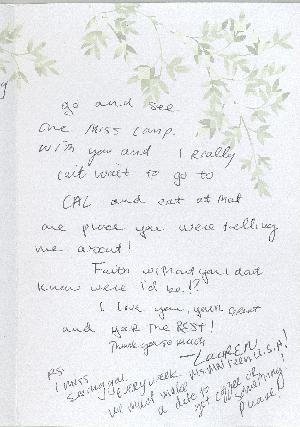 go and see
one Miss Camp.
with you and I really
can't wait to go to
CAL and eat at that
one place you were telling
me about!
Faith without you I dont
know were i'd be!!?
I love you, your Great
and your THE BEST!
Thank you so much
— LAUREN!
PS.
I miss
Seeing you EVERY week. MS. MN Teen U.S.A!
we must make
a date to
get coffee or
something!
Please!!